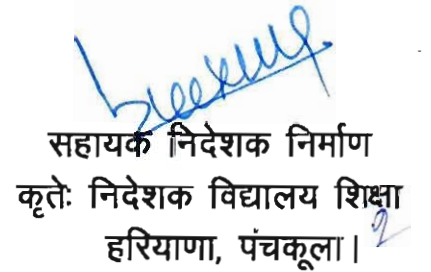 सहायक निदेशक निर्माण
कृतेः निदेशक विद्यालय शिक्षा
हरियाणा, पंचकूला। 2